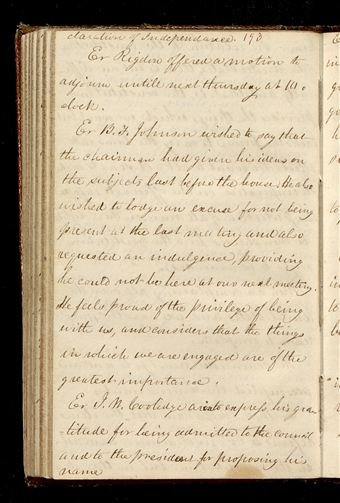 claration of Independance. 193
Er Rigdon offered a motion to
adjourn untill next thursday at 10 o
clock.
Er B. F. Johnson wished to say that
the chairman had given his ideas on
the subjects last before the house. He also
wished to lodge an excuse for not being
present at the last meeting and also
requested an indulgence, providing
he could not be here at our next meeting.
He feels proud of the privilege of being
with us, and considers that the things
in which we are engaged are of the
greatest importance.
Er J. W. Coolidge arose to express his gra-
titude for being admitted to the council
and to the president for proposing his
name